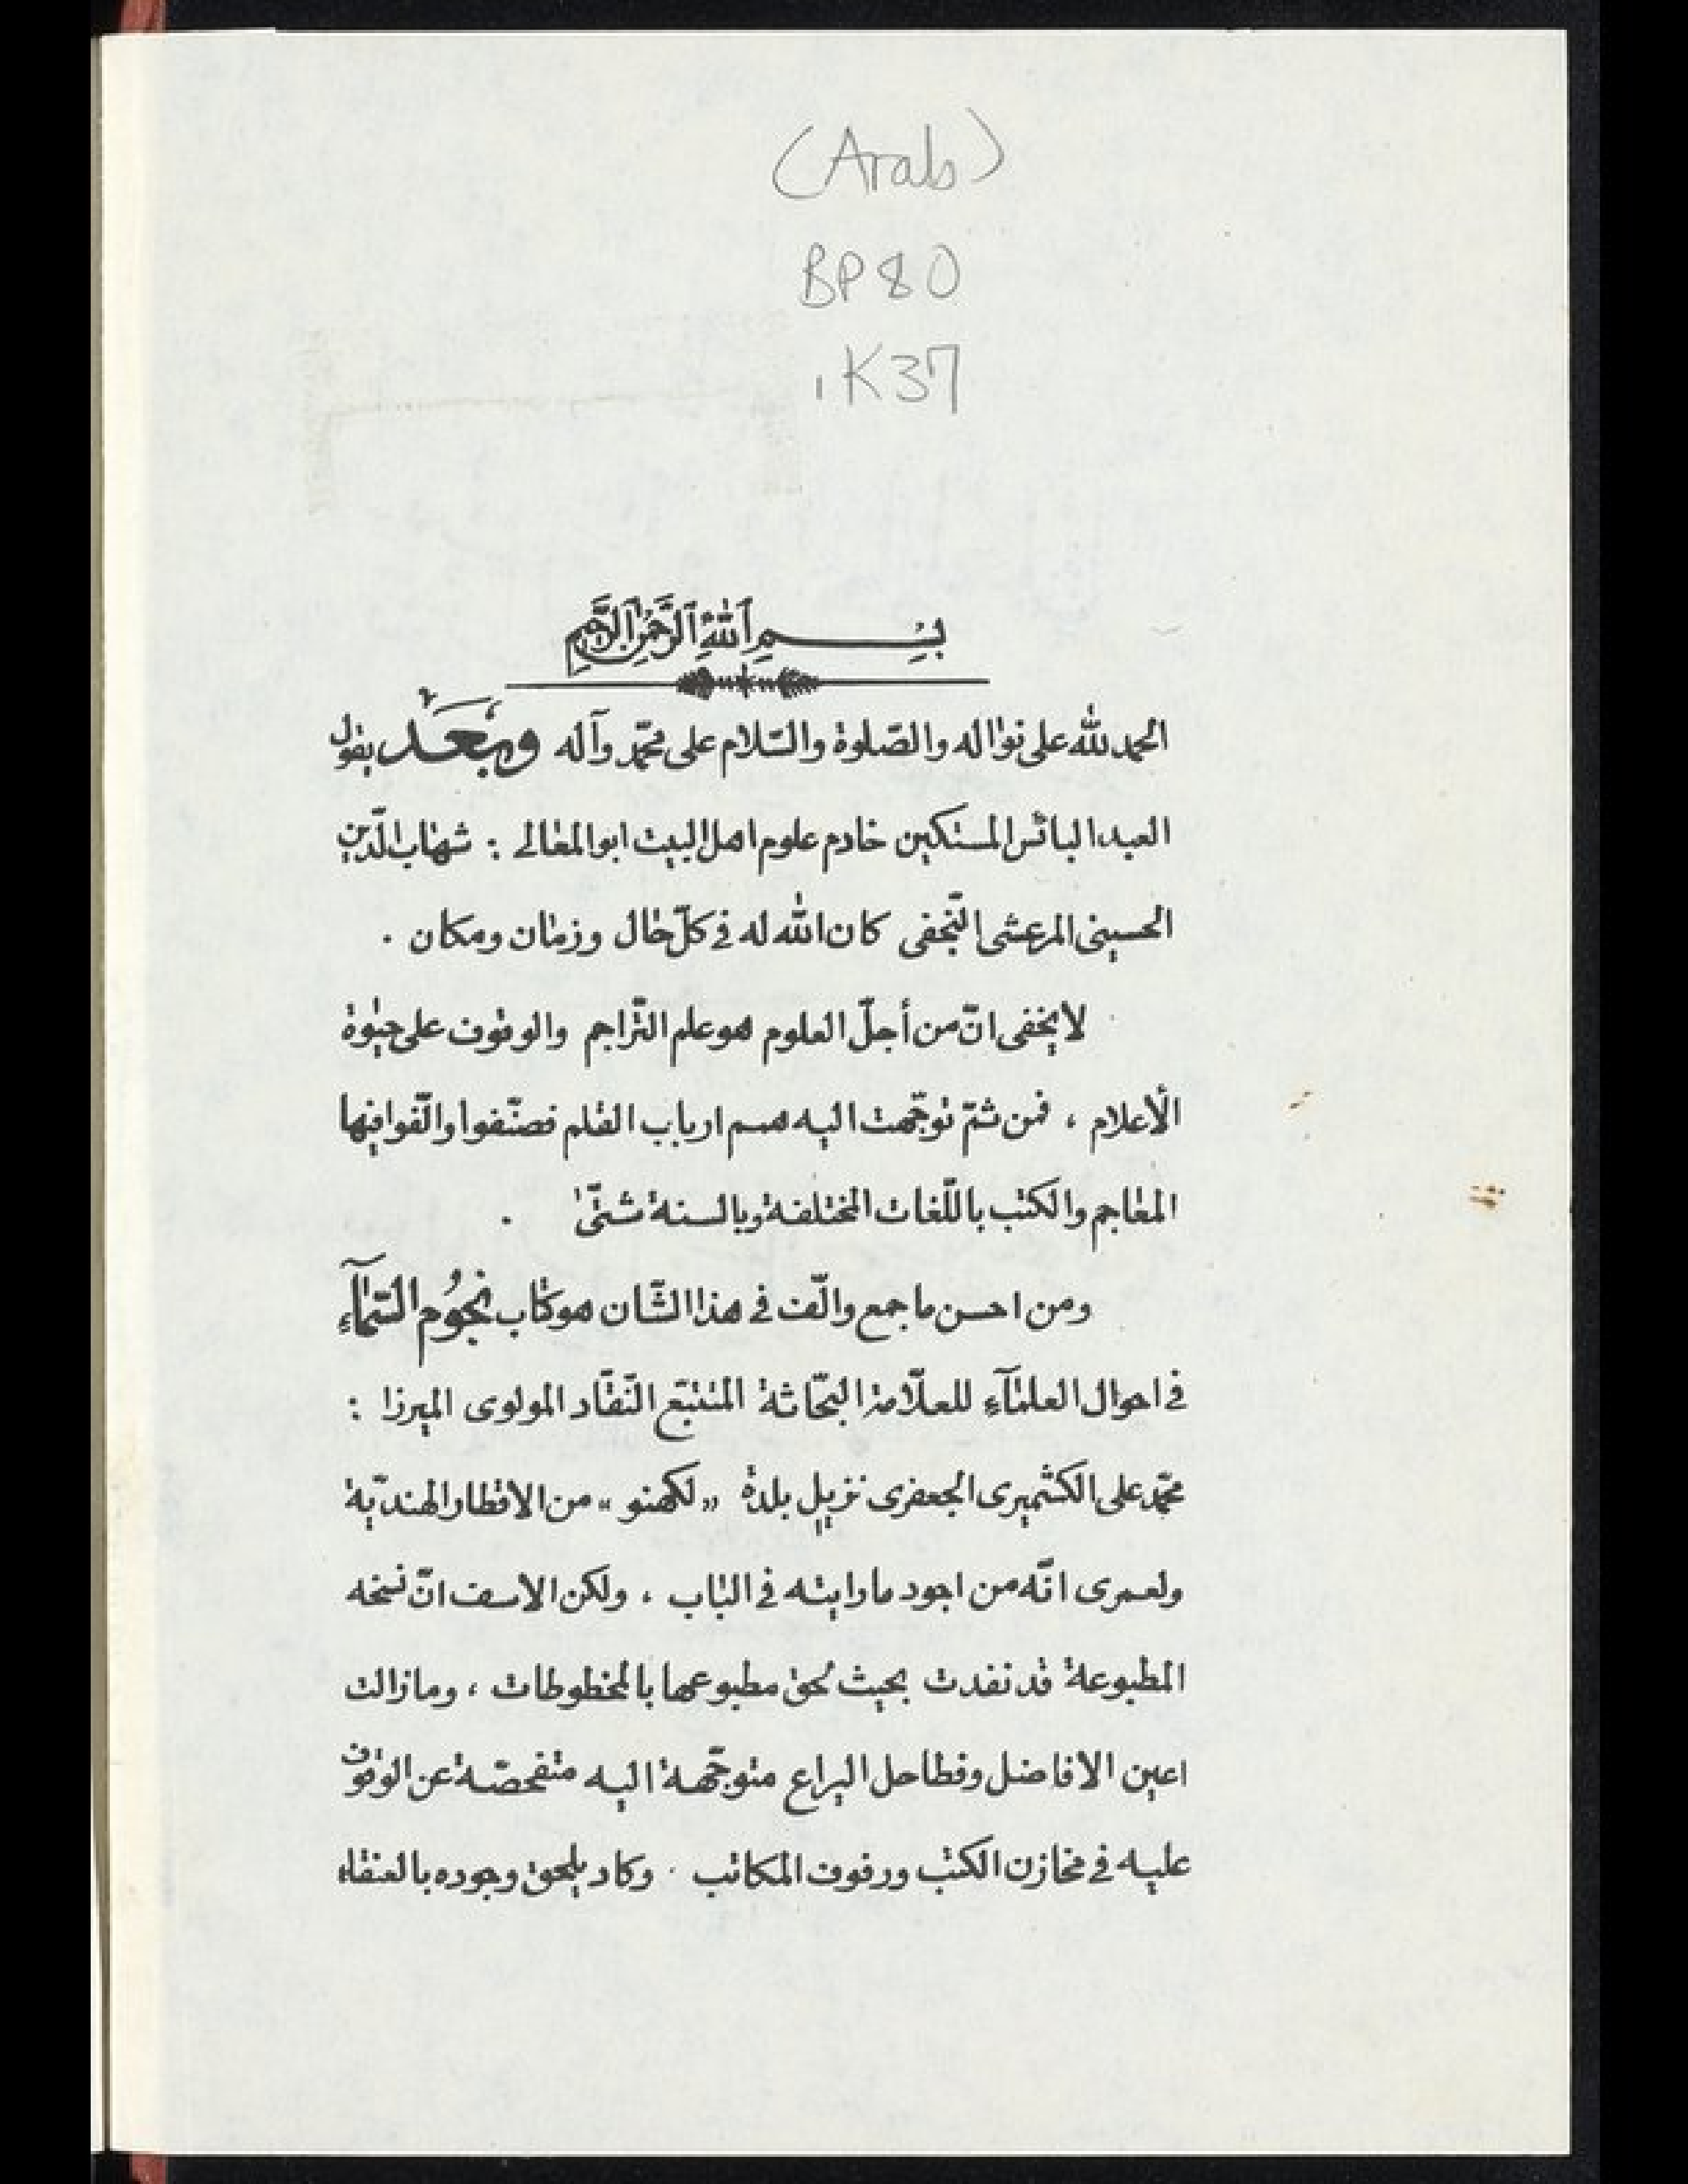 (Arab)
BP80
.K37
بِسْمِ اللهِ الرَّحْمٰنِ الرَّحِيمِ
الحمد للّٰه على نواله والصّلوة والسّلام على محمّد وآله وبَعَد يقول
العبد البائس المستكين خادم علوم اهل البيت ابو المعالى : شهاب الدّين
الحسينى المرعشى النّجفى كان اللّٰه له فى كلّ حال وزمان ومكان .
لا يخفى انّ من أجلّ العلوم هو علم التّراجم والوقوف على حيوة
الأعلام ، فمن ثمّ توجّهت اليه همم ارباب القلم فصنّفوا والّفوا فيها
المعاجم والكتب باللّغات المختلفة وبالسنة شتّىٰ .
ومن احسن ما جمع والّف فى هذا الشّان هو كتاب نجُوُم السّمآءِ
فى احوال العلمآءِ للعلّامة البحّاثة المتتبّع النّقّاد المولوى الميرزا :
محمّد على الكشميرى الجعفرى نزيل بلدة «لكهنو» من الاقطار الهنديّة
ولعمرى انّه من اجود ما رايته فى الباب ، ولكن الاسف انّ نسخه
المطبوعة قد نفدت بحيث لحق مطبوعها بالمخطوطات ، ومازالت
اعين الافاضل وفطاحل اليراع متوجّهة اليه متفحصّة عن الوقوف
عليه فى مخازن الكتب ورفوف المكاتب . وكاد يلحق وجوده بالعنقاء